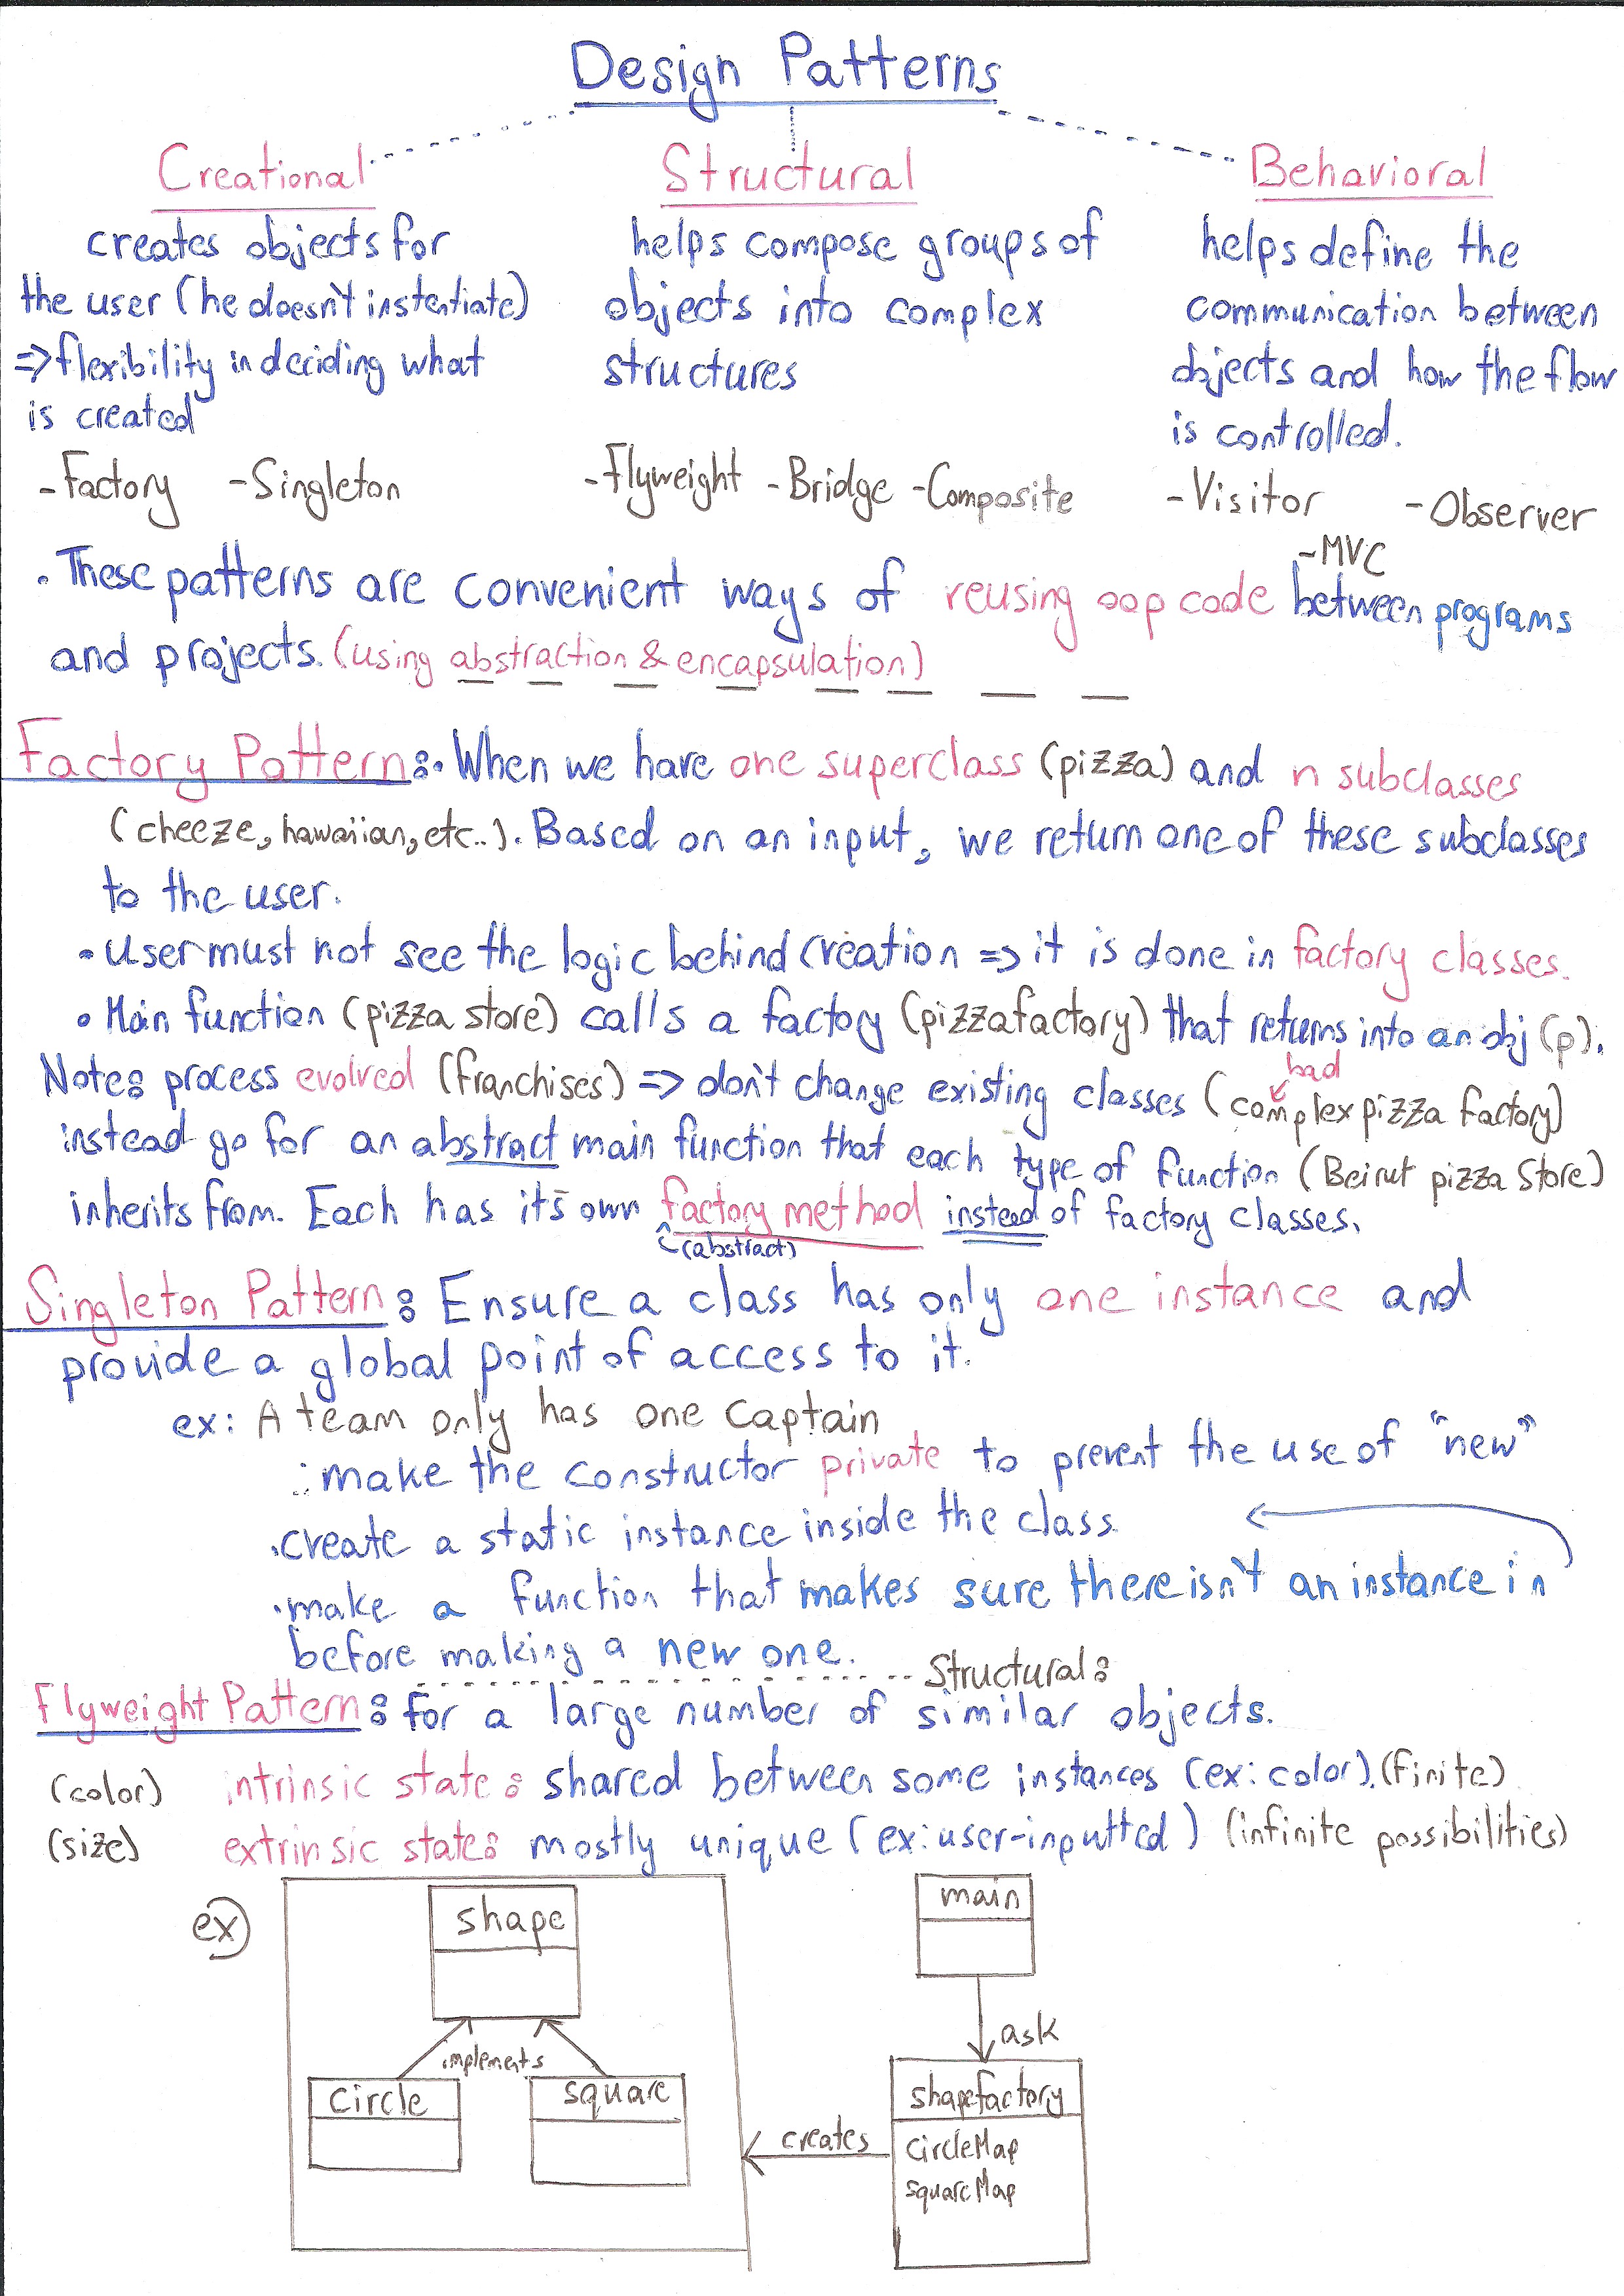 Design Patterns
Creational
creates objects for
the user (he doesn't instentiate)
=> flexibility in deciding what
is created
- Factory - Singleton
Structural
helps compose groups of
objects into complex
structures
- Flyweight - Bridge - Composite
Behavioral
helps define the
communication between
objects and how the flow
is controlled.
- Visitor - Observer
- MVC
. These patterns are convenient ways of reusing oop code between programs
and projects. (using abstraction & encapsulation)
Factory Pattern: • When we have one superclass (pizza) and n subclasses
(cheeze, hawaiian, etc..). Based on an input, we return one of these subclasses
to the user.
• User must not see the logic behind creation => it is done in factory classes.
• Main function (pizza store) calls a factory (pizzafactory) that returns into an obj (p).
bad
Note: process evolved (franchises) => don't change existing classes (complex pizza factory)
instead go for an abstract main function that each type of function (Beirut pizza store)
inherits from. Each has it's own factory method instead of factory classes.
(abstract)
Singleton Pattern: Ensure a class has only one instance and
provide a global point of access to it.
ex: A team only has one captain
. make the constructor private to prevent the use of "new"
. create a static instance inside the class
. make a function that makes sure there isn't an instance in
before making a new one.
Structural:
Flyweight Pattern: for a large number of similar objects.
(color) intrinsic state: shared between some instances (ex: color). (finite)
(size) extrinsic state: mostly unique (ex: user-inputted) (infinite possibilities)
ex)
shape
implements
circle
square
main
ask
shapefactory
circleMap
squareMap
creates